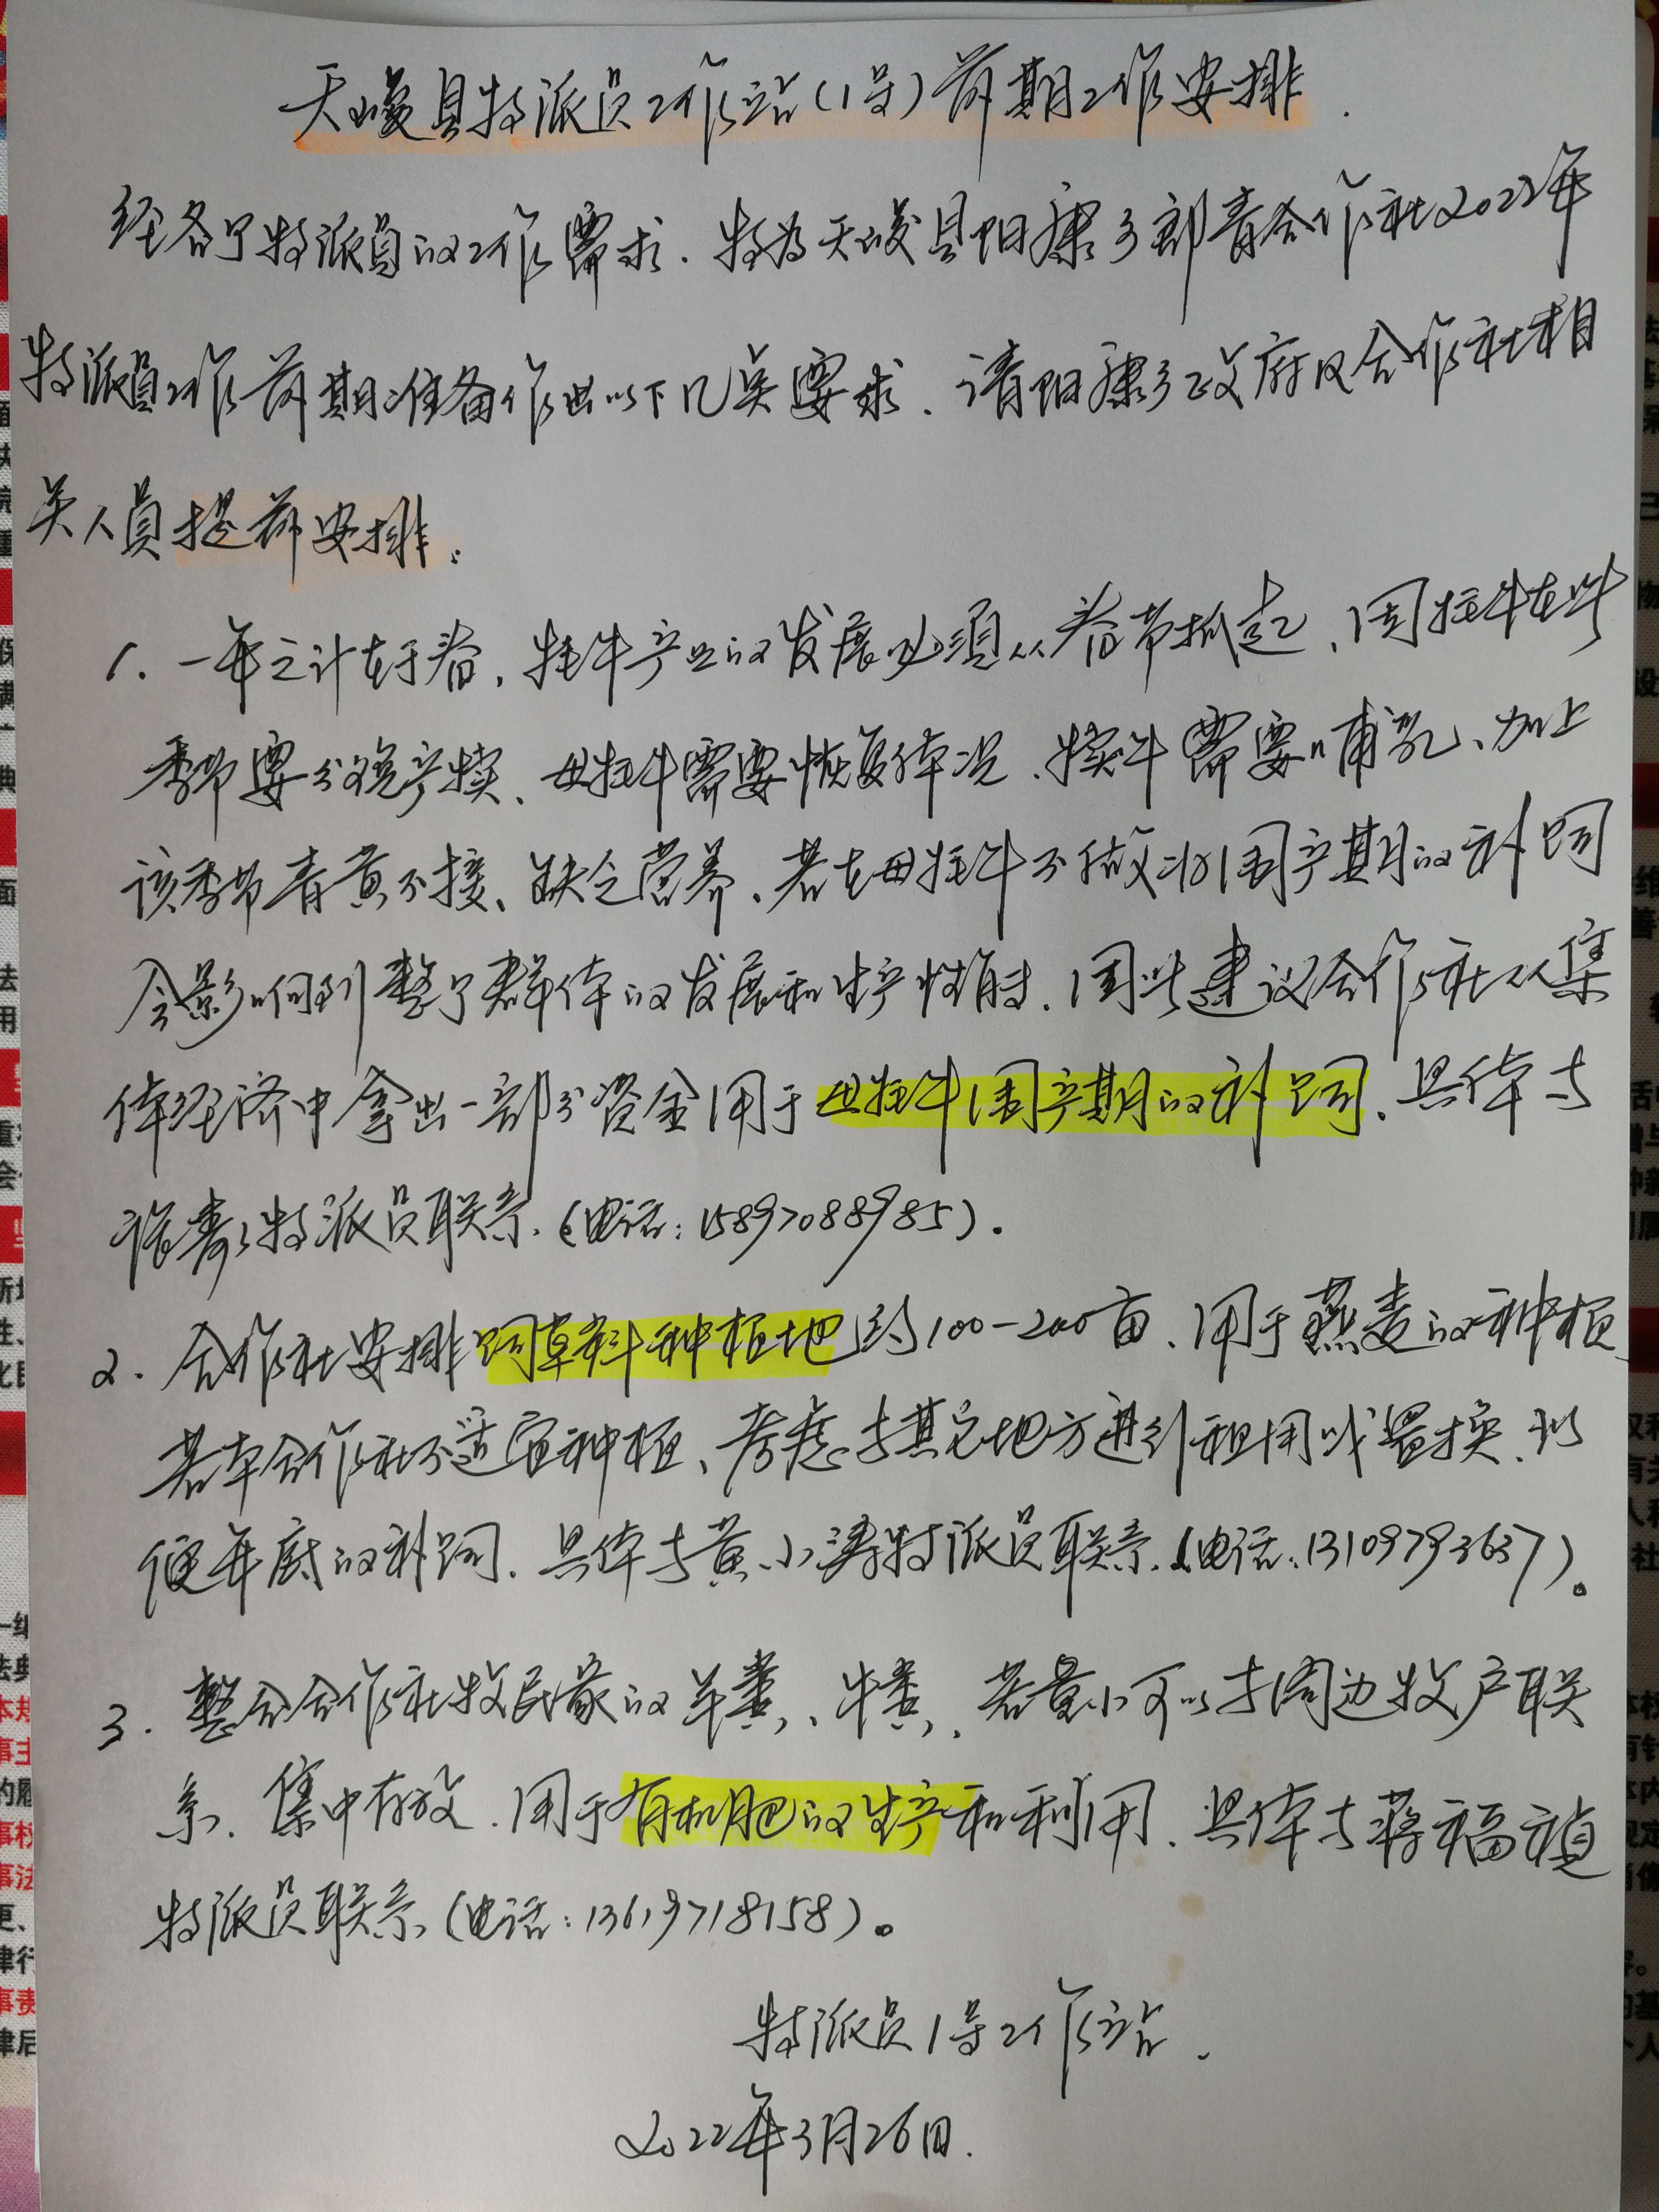 天峻县特派员工作站(1号)前期工作安排.
经各个特派员的工作需求.特为天峻县阳康乡郭青合作社2022年
特派员工作前期准备作出以下几类要求.请阳康乡政府及合作社相
关人员提前安排:
1. 一年之计在于春,牦牛产业的发展必须从春节抓起、因牦牛在此
季节要分娩产犊、母牦牛需要恢复体况、犊牛需要哺乳、加上
该季节青黄不接、缺乏营养、若在母牦牛不做好围产期的补饲
会影响到整个群体的发展和生产性能.因此建议合作社从集
体经济中拿出一部分资金用于母牦牛围产期的补饲、具体与
特派员联系.(电话:15897088985).
2. 合作社安排饲草料种植地约100-200亩、用于燕麦的种植、
若本合作社不适宜种植、考虑与其它地方进行租用或置换、以
便年底的补饲.具体与黄小涛特派员联系.(电话:13109793637)。
3. 整合合作社牧民家的羊粪、牛粪、若量小可以与周边牧户联
系、集中存放.用于有机肥的生产和利用、具体与蒋福祯
特派员联系(电话:13619718158)。
特派员1号工作站.
2022年3月26日.